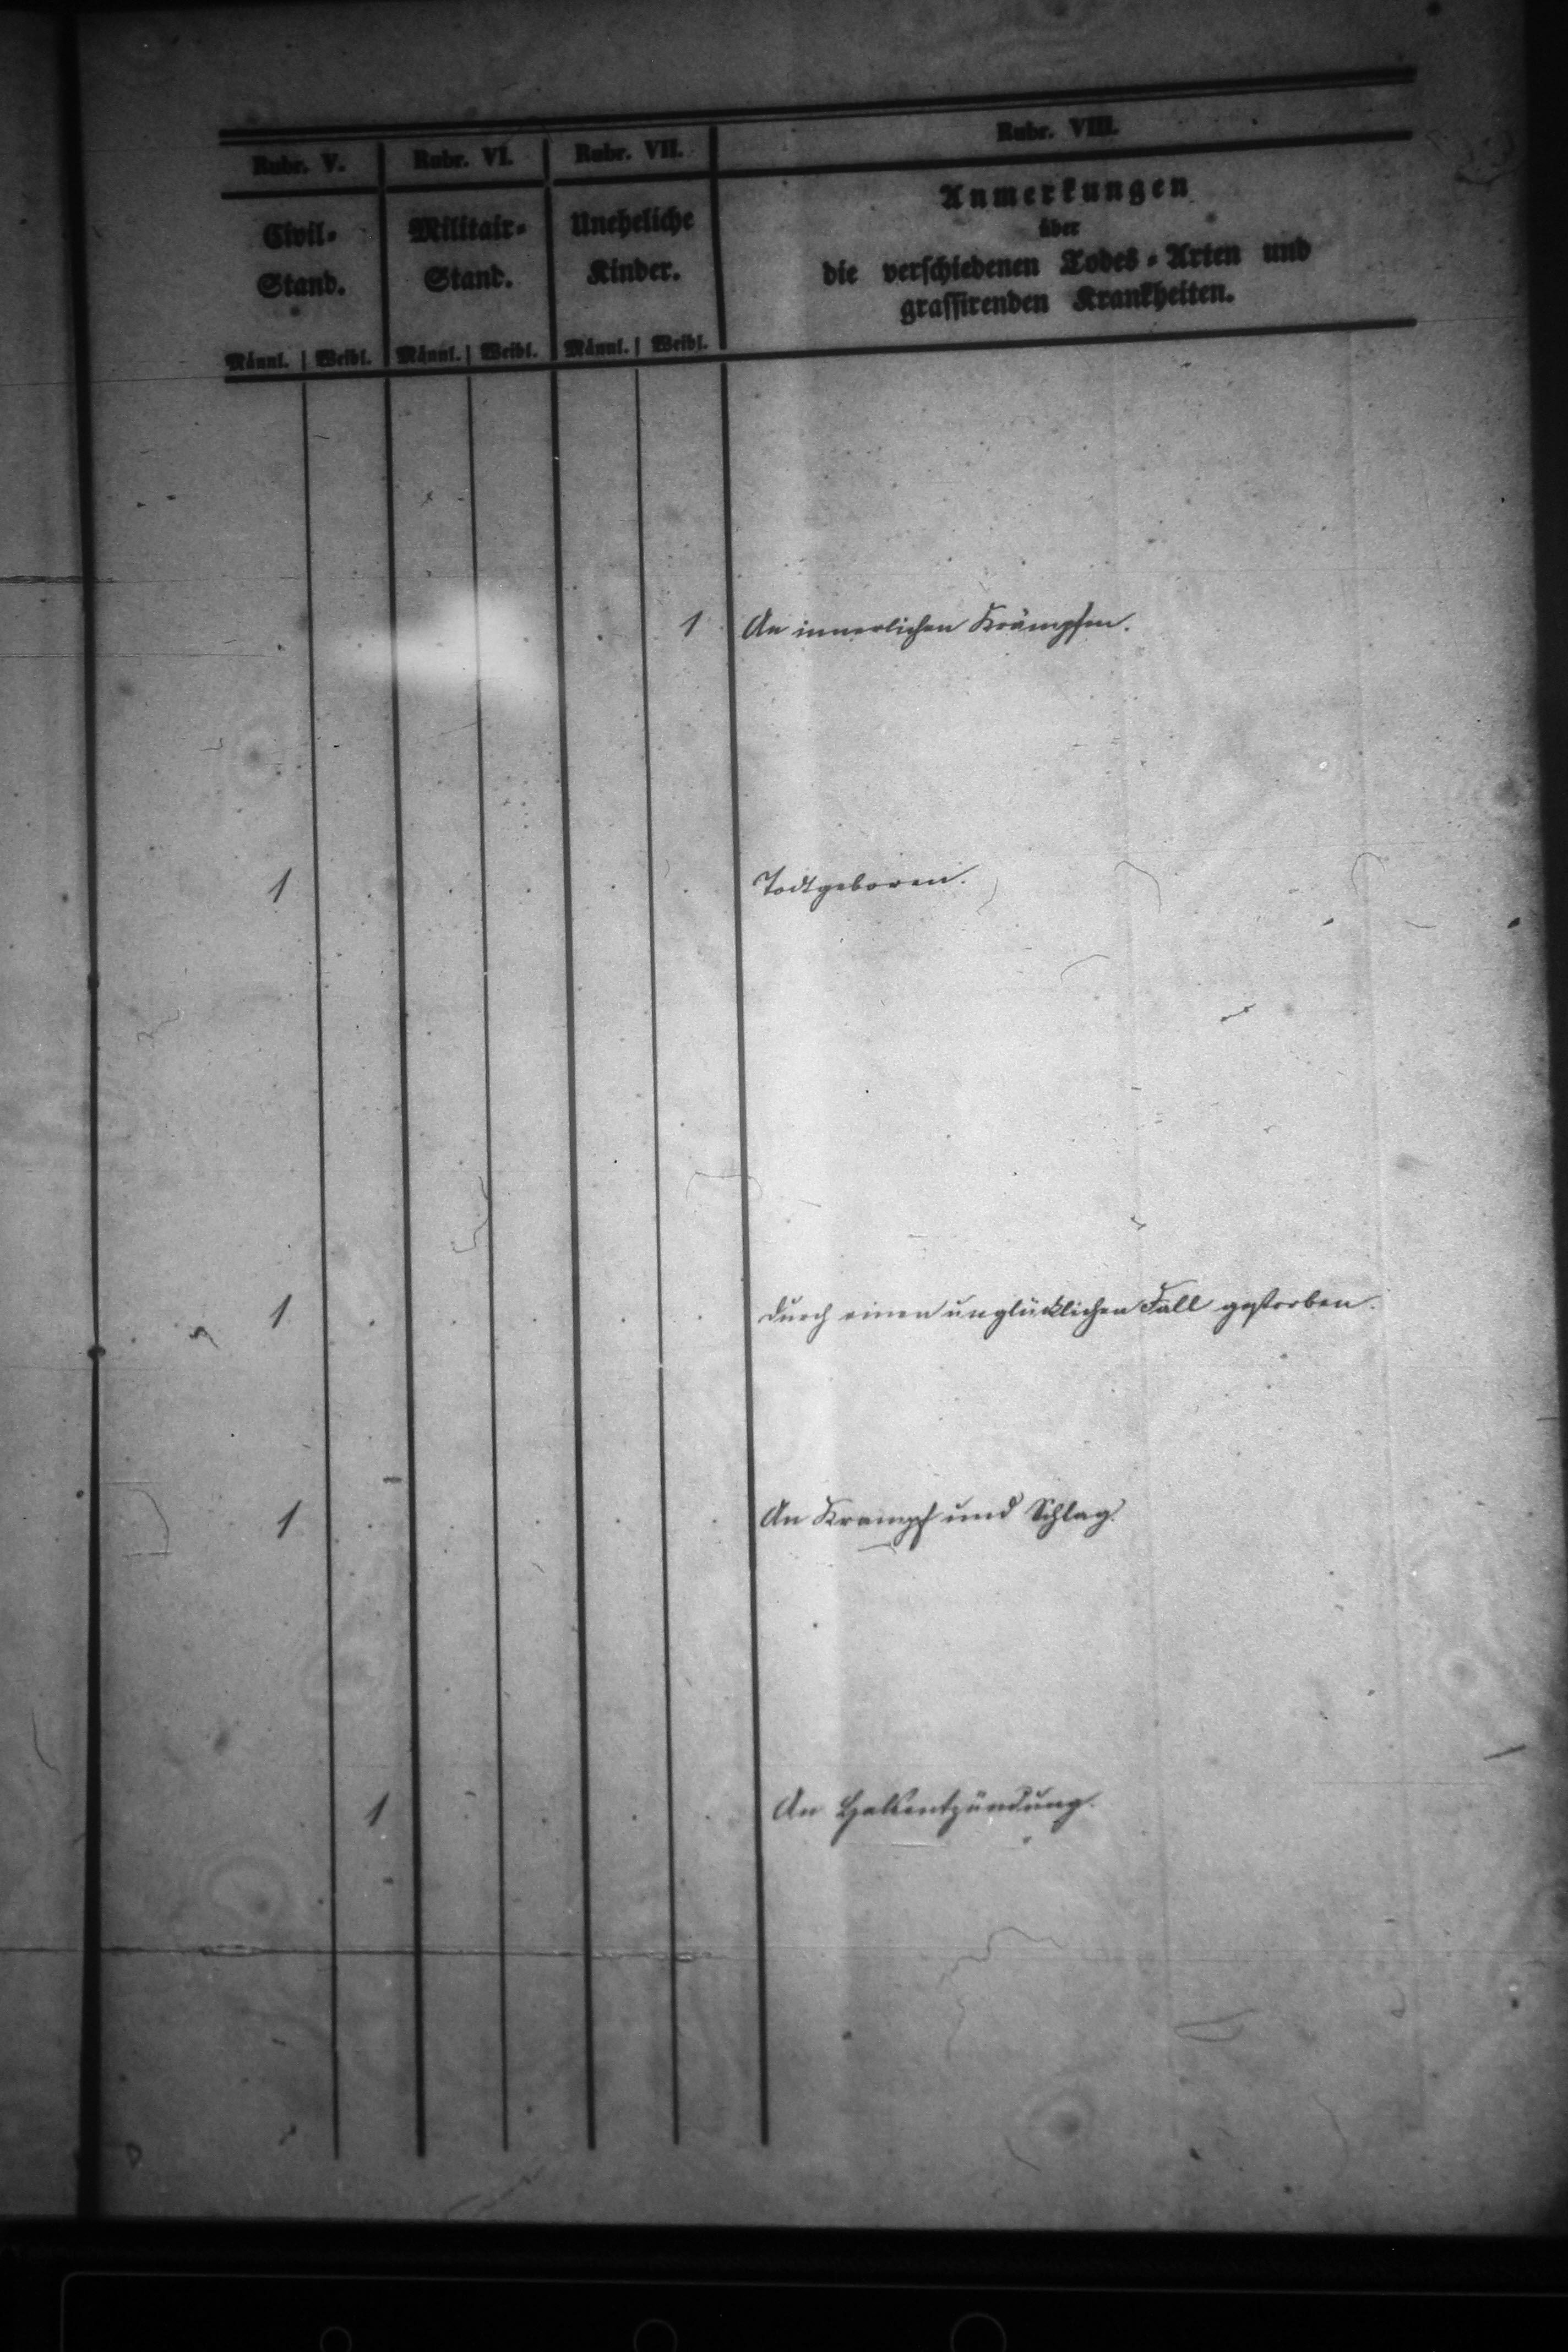 Rubr. V. Rubr. VI. Rubr. VII. Rubr. VIII.
Civil- Militair- Uneheliche Anmerkungen
Stand. Stand. Kinder. über
die verschiedenen Todes-Arten und
grassirenden Krankheiten.
Männl. Weibl. Männl. Weibl. Männl. Weibl.
1 An innerlichen Krämpfen.
1 Todtgeboren.
1 durch einen unglücklichen Fall gestorben.
1 An Krampf und Schlag.
1 An Halsentzündung.